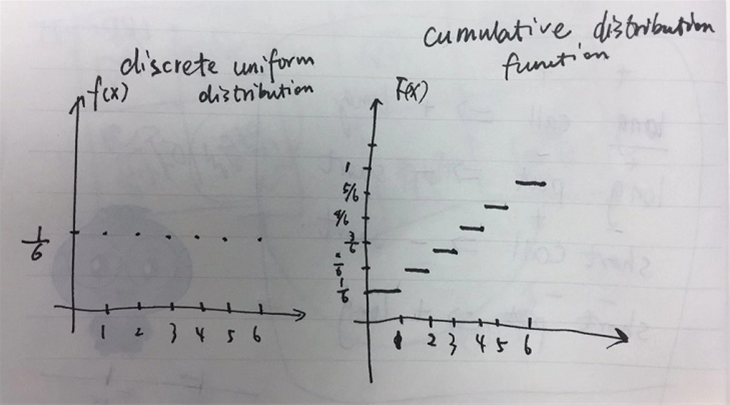 discrete uniform
distribution
f(x)
1/6
1 2 3 4 5 6
cumulative distribution
function
F(x)
1
5/6
4/6
3/6
1/6
2 3 4 5 6